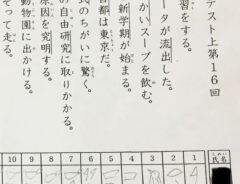 テスト上第16回
習をする。
ータが流出した。
かいスープを飲む。
新学期が始まる。
都は東京だ。
式のちがいに驚く。
の自由研究に取りかかる。
原因を究明する。
動物園に出かける。
そって走る。
氏名
1
2
3
4
5
6
7
8
9
10